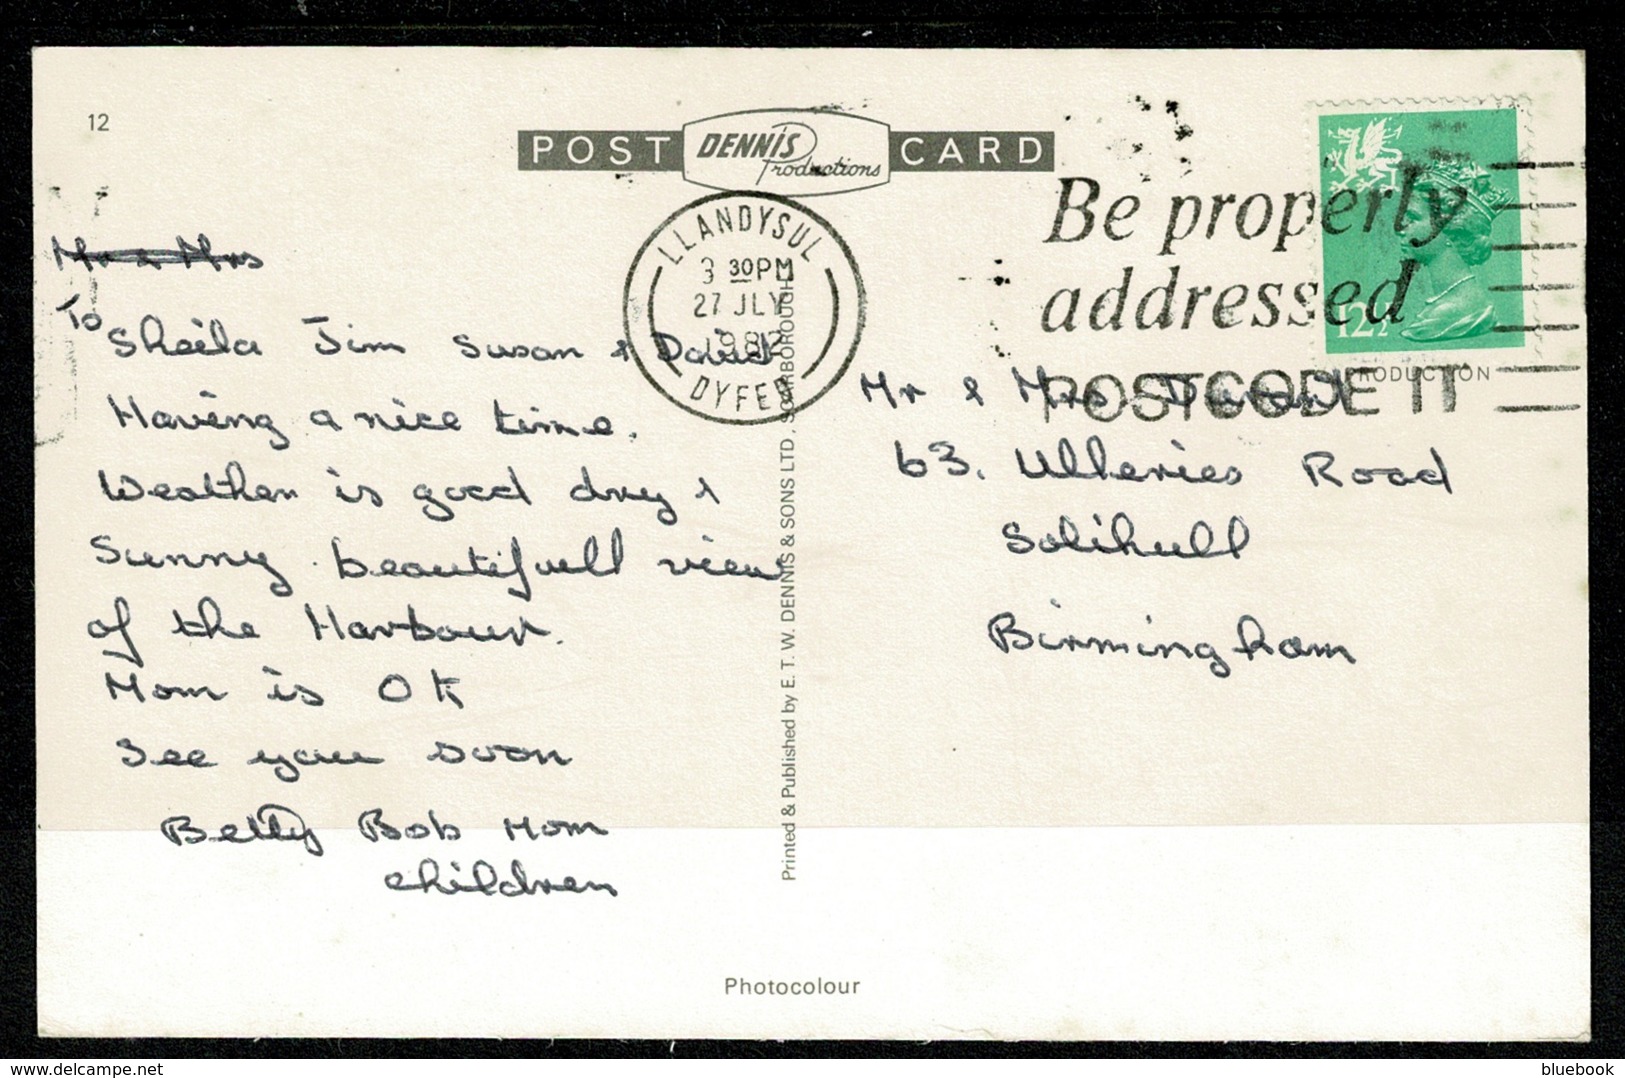 12
POST DENNIS Productions CARD
LLANDYSUL
3 30PM
27 JLY
1982
DYFED
Be properly
addressed
POSTCODE IT
12½
Mr & Mrs
To
Sheila Jim Susan & David
Having a nice time.
Weather is good dry &
Sunny. beautifull view
of the Harbour.
Mom is OK
See you soon
Betty Bob Mom
children
Printed & Published by E. T. W. DENNIS & SONS LTD., SCARBOROUGH
RODUCTION
Mr & Mrs
63. Ulleries Road
Solihull
Birmingham
Photocolour
delcampe.net
bluebook